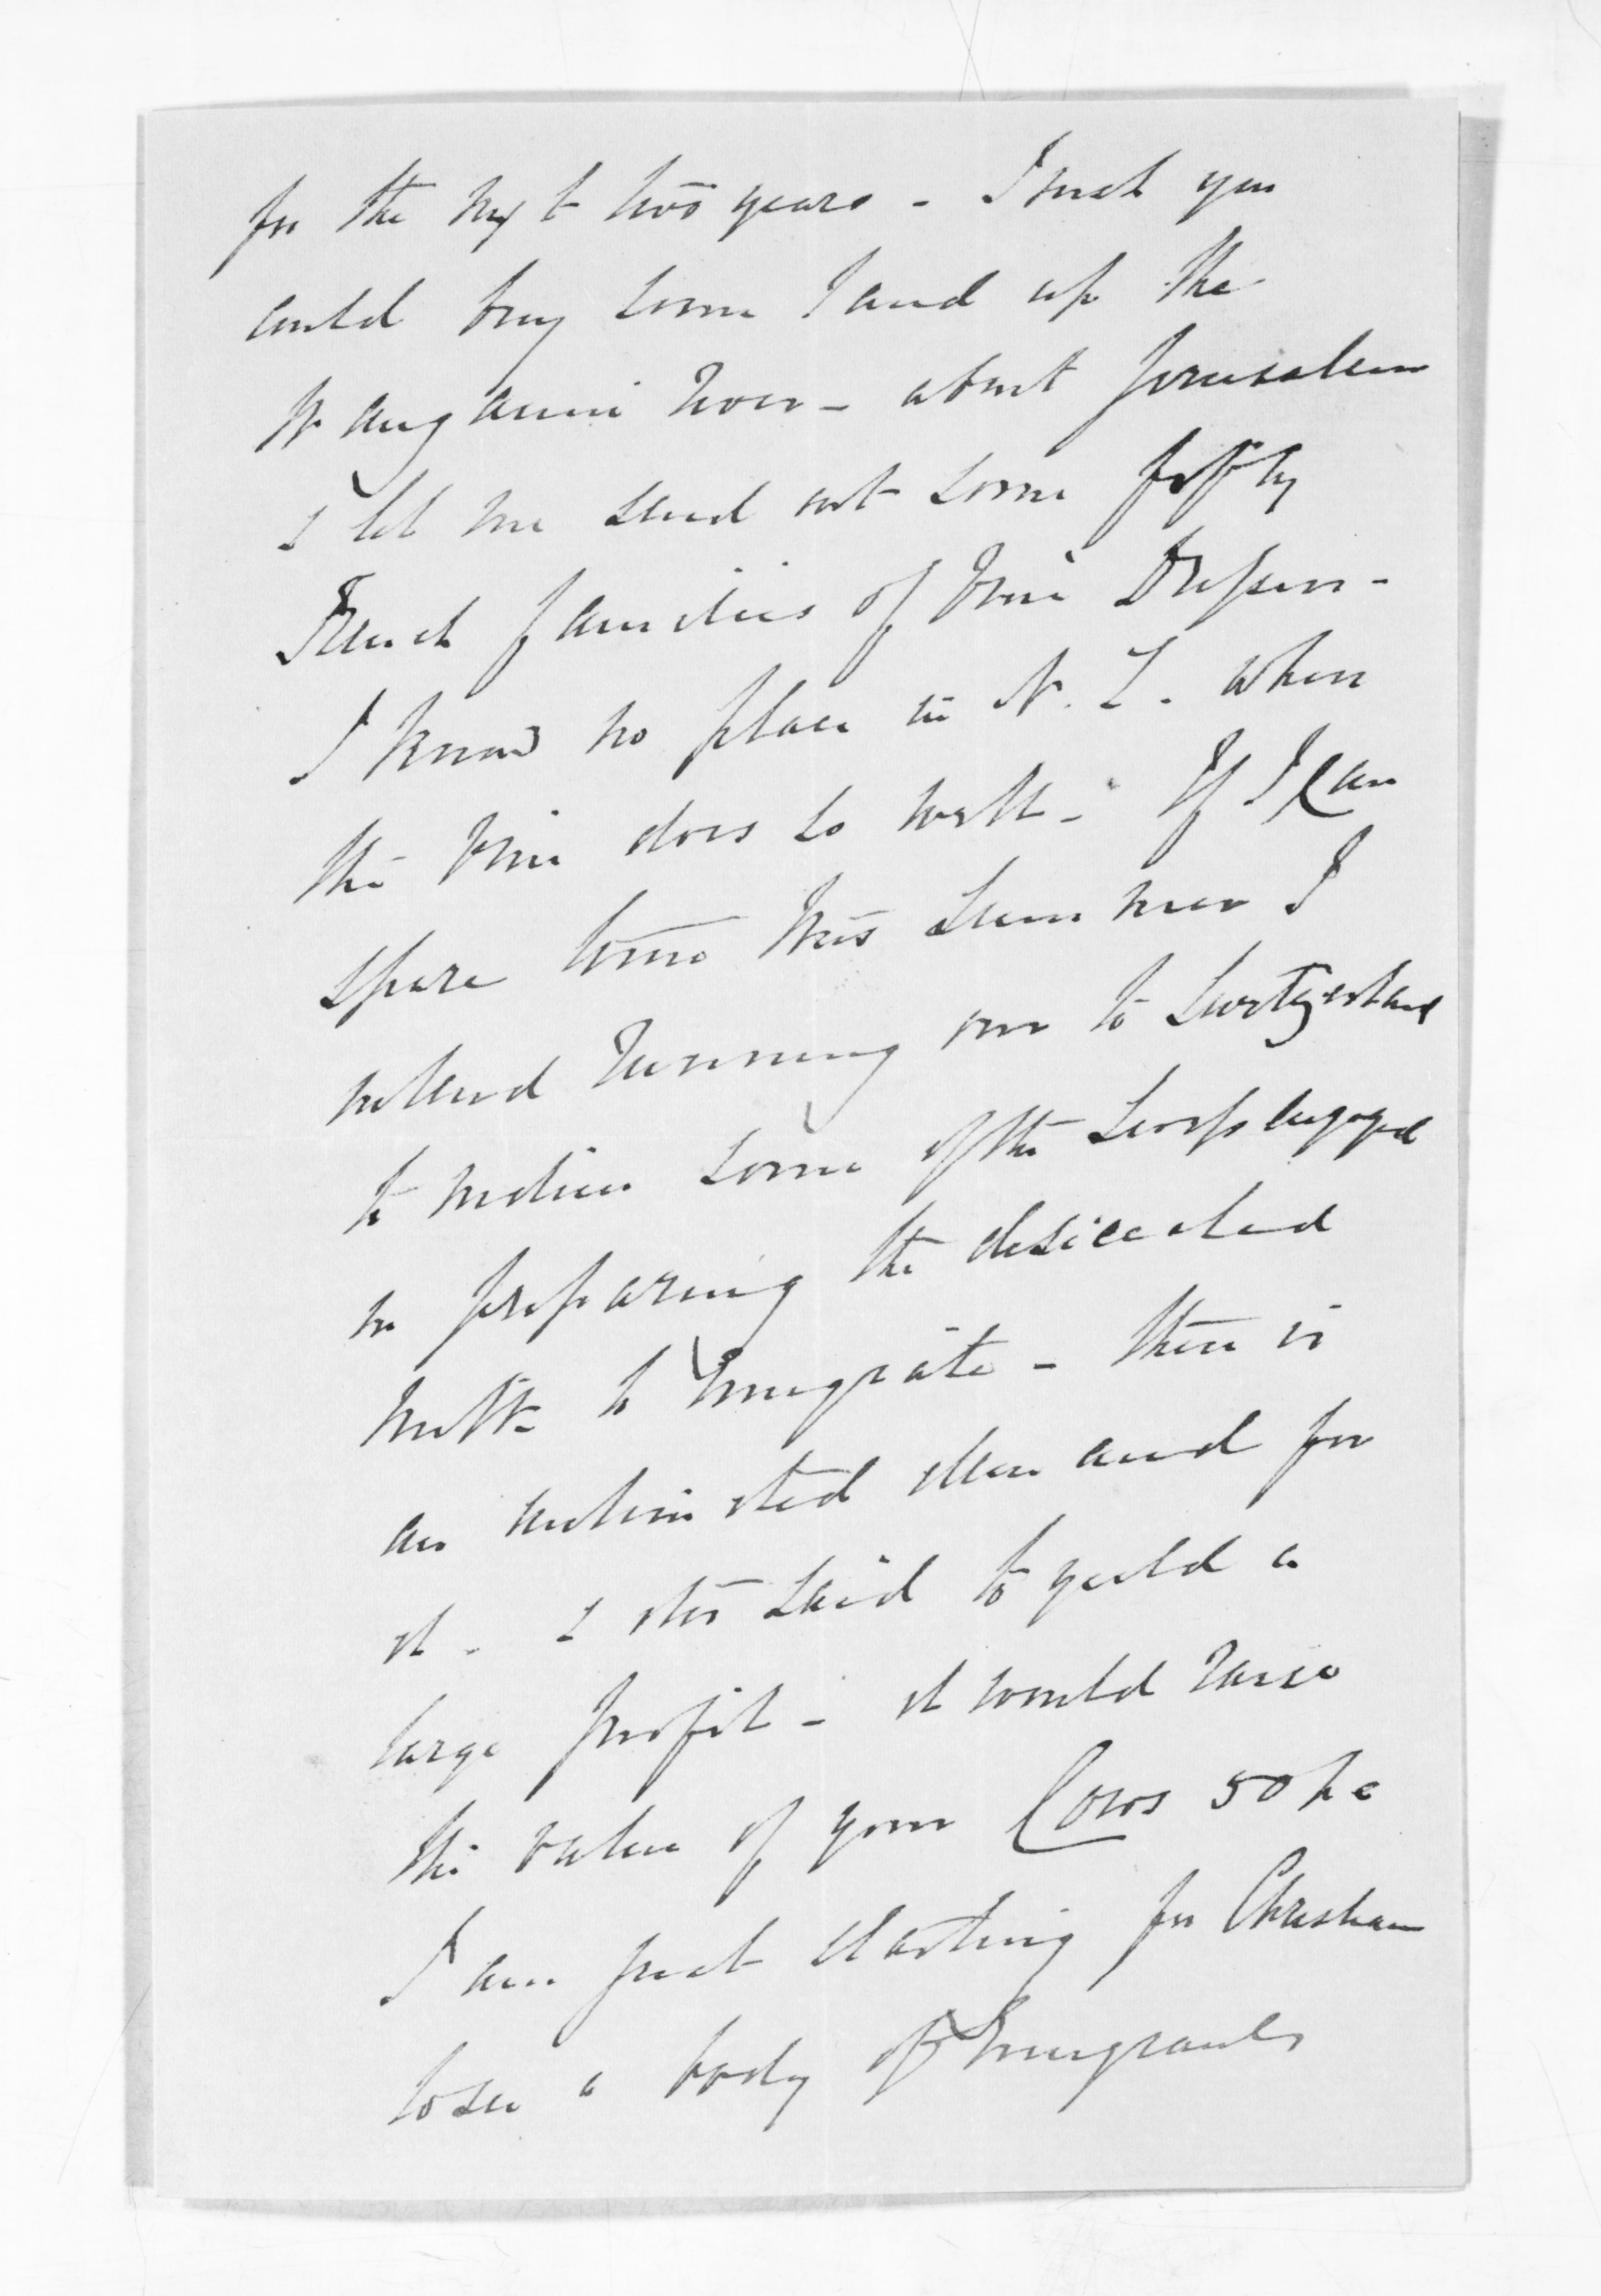 for the next two years - I wish you
could buy some land up the
Wanganui River - about Jerusalem
& let me send out some fifty
French families of Vine Dressers -
I know no place in N. Z. where
the Vine does so well - If I can
spare time this Summer I
intend running over to Switzerland
to induce some of the Swiss engaged
in preparing the desiccated
milk to Emigrate - there is
an unlimited demand for
it - & it is said to yield a
large profit - it would raise
the value of your Cows 50 pc
I am just starting for Christian
to see a body of Emigrants